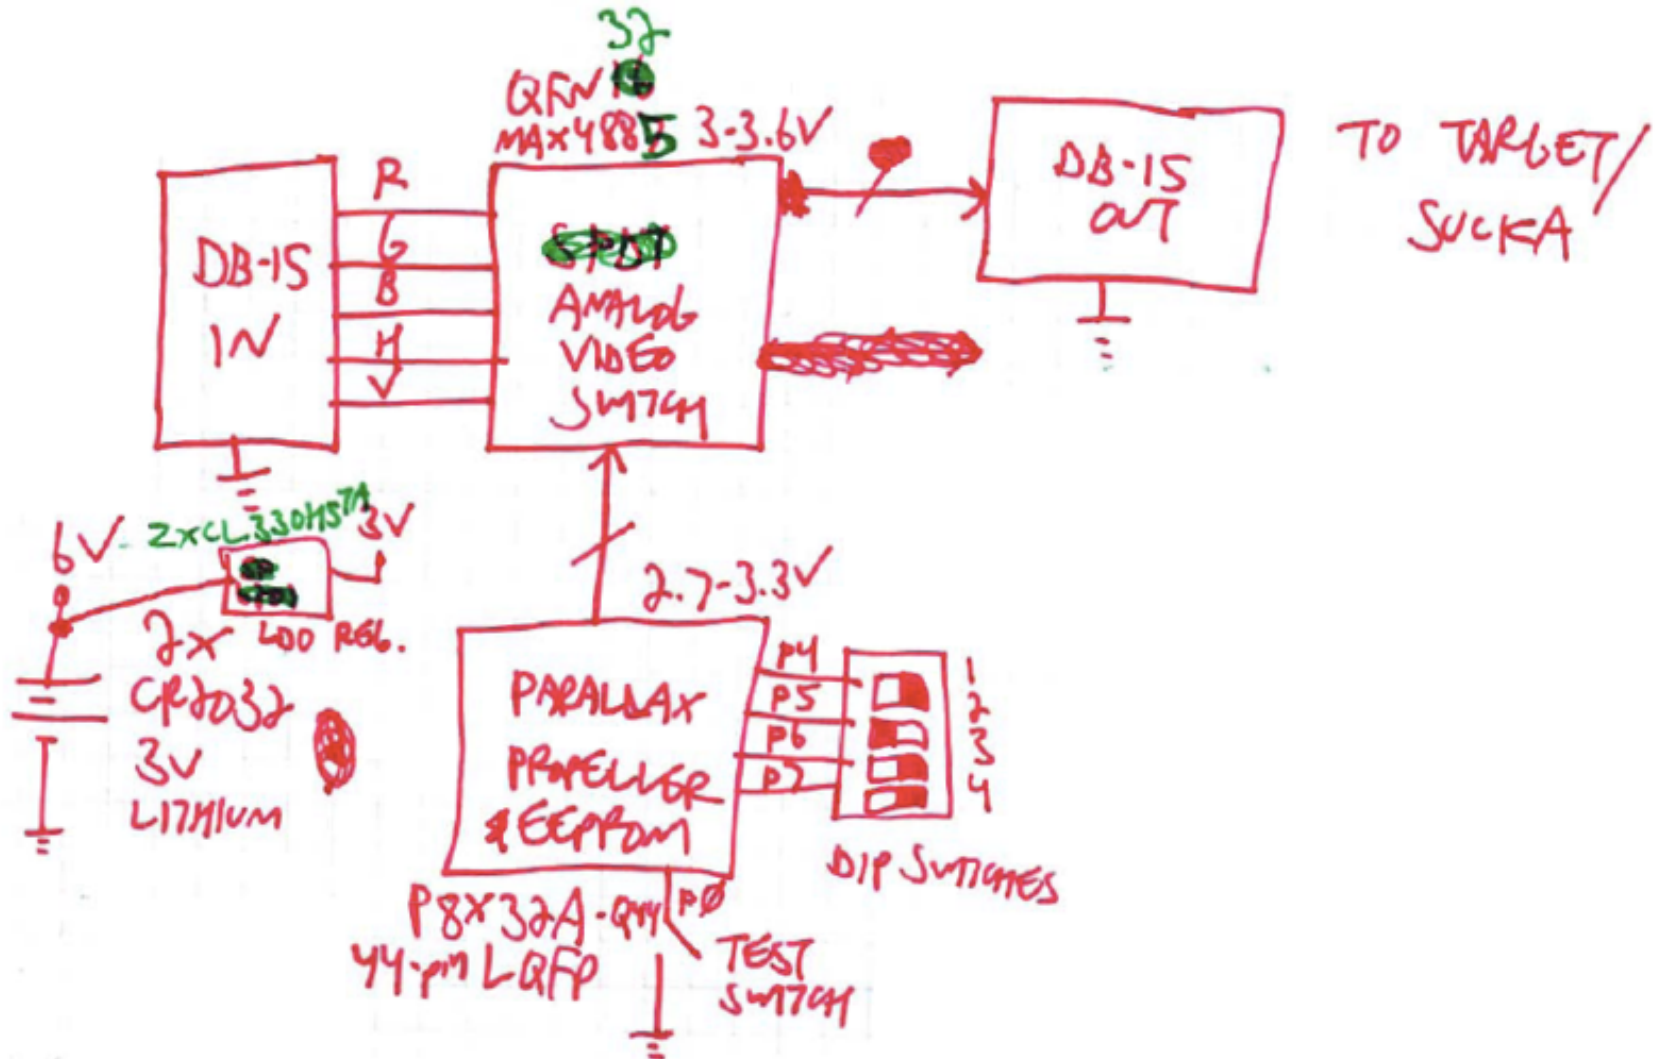 32
QFN
MAX4885 3-3.6V
R
G
B
H
V
DB-15
IN
ANALOG
VIDEO
SWITCH
DB-15
OUT
TO TARGET/
SUCKA
6V
ZXCL330H5TA
3V
LDO REG.
2x
CR2032
3V
LITHIUM
2.7-3.3V
PARALLAX
PROPELLER
& EEPROM
P4
P5
P6
P7
1
2
3
4
DIP SWITCHES
P8X32A-Q44
44-pin LQFP
PØ
TEST
SWITCH